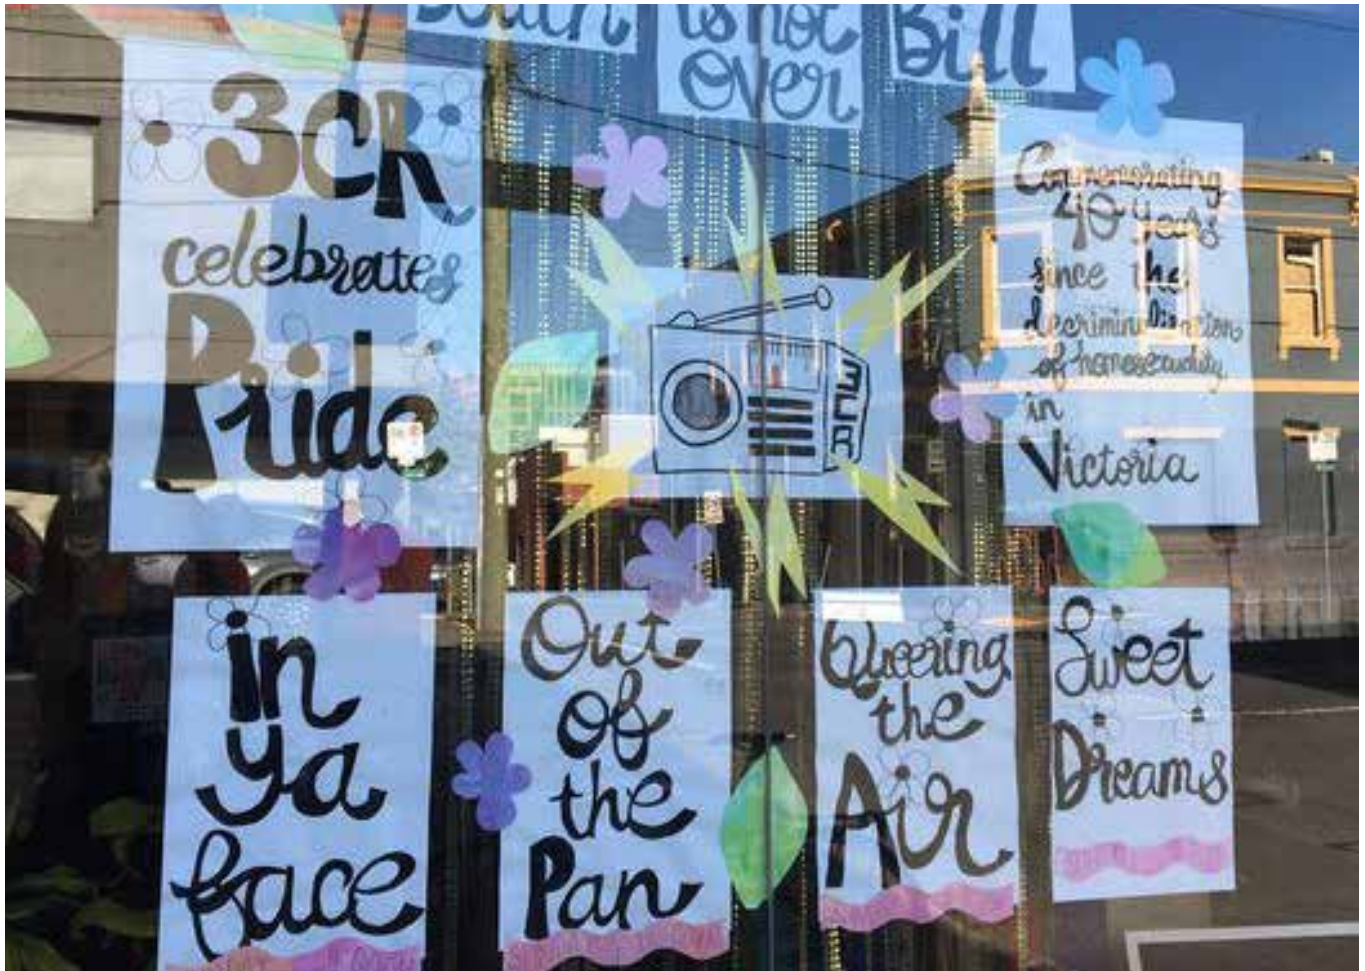 is not
over
Bill
3CR
celebrates
Pride
3CR
Commemorating
40 years
since the
decriminalisation
of homosexuality
in
Victoria
in
ya
face
Out
of
the
Pan
Queering
the
Air
Sweet
Dreams